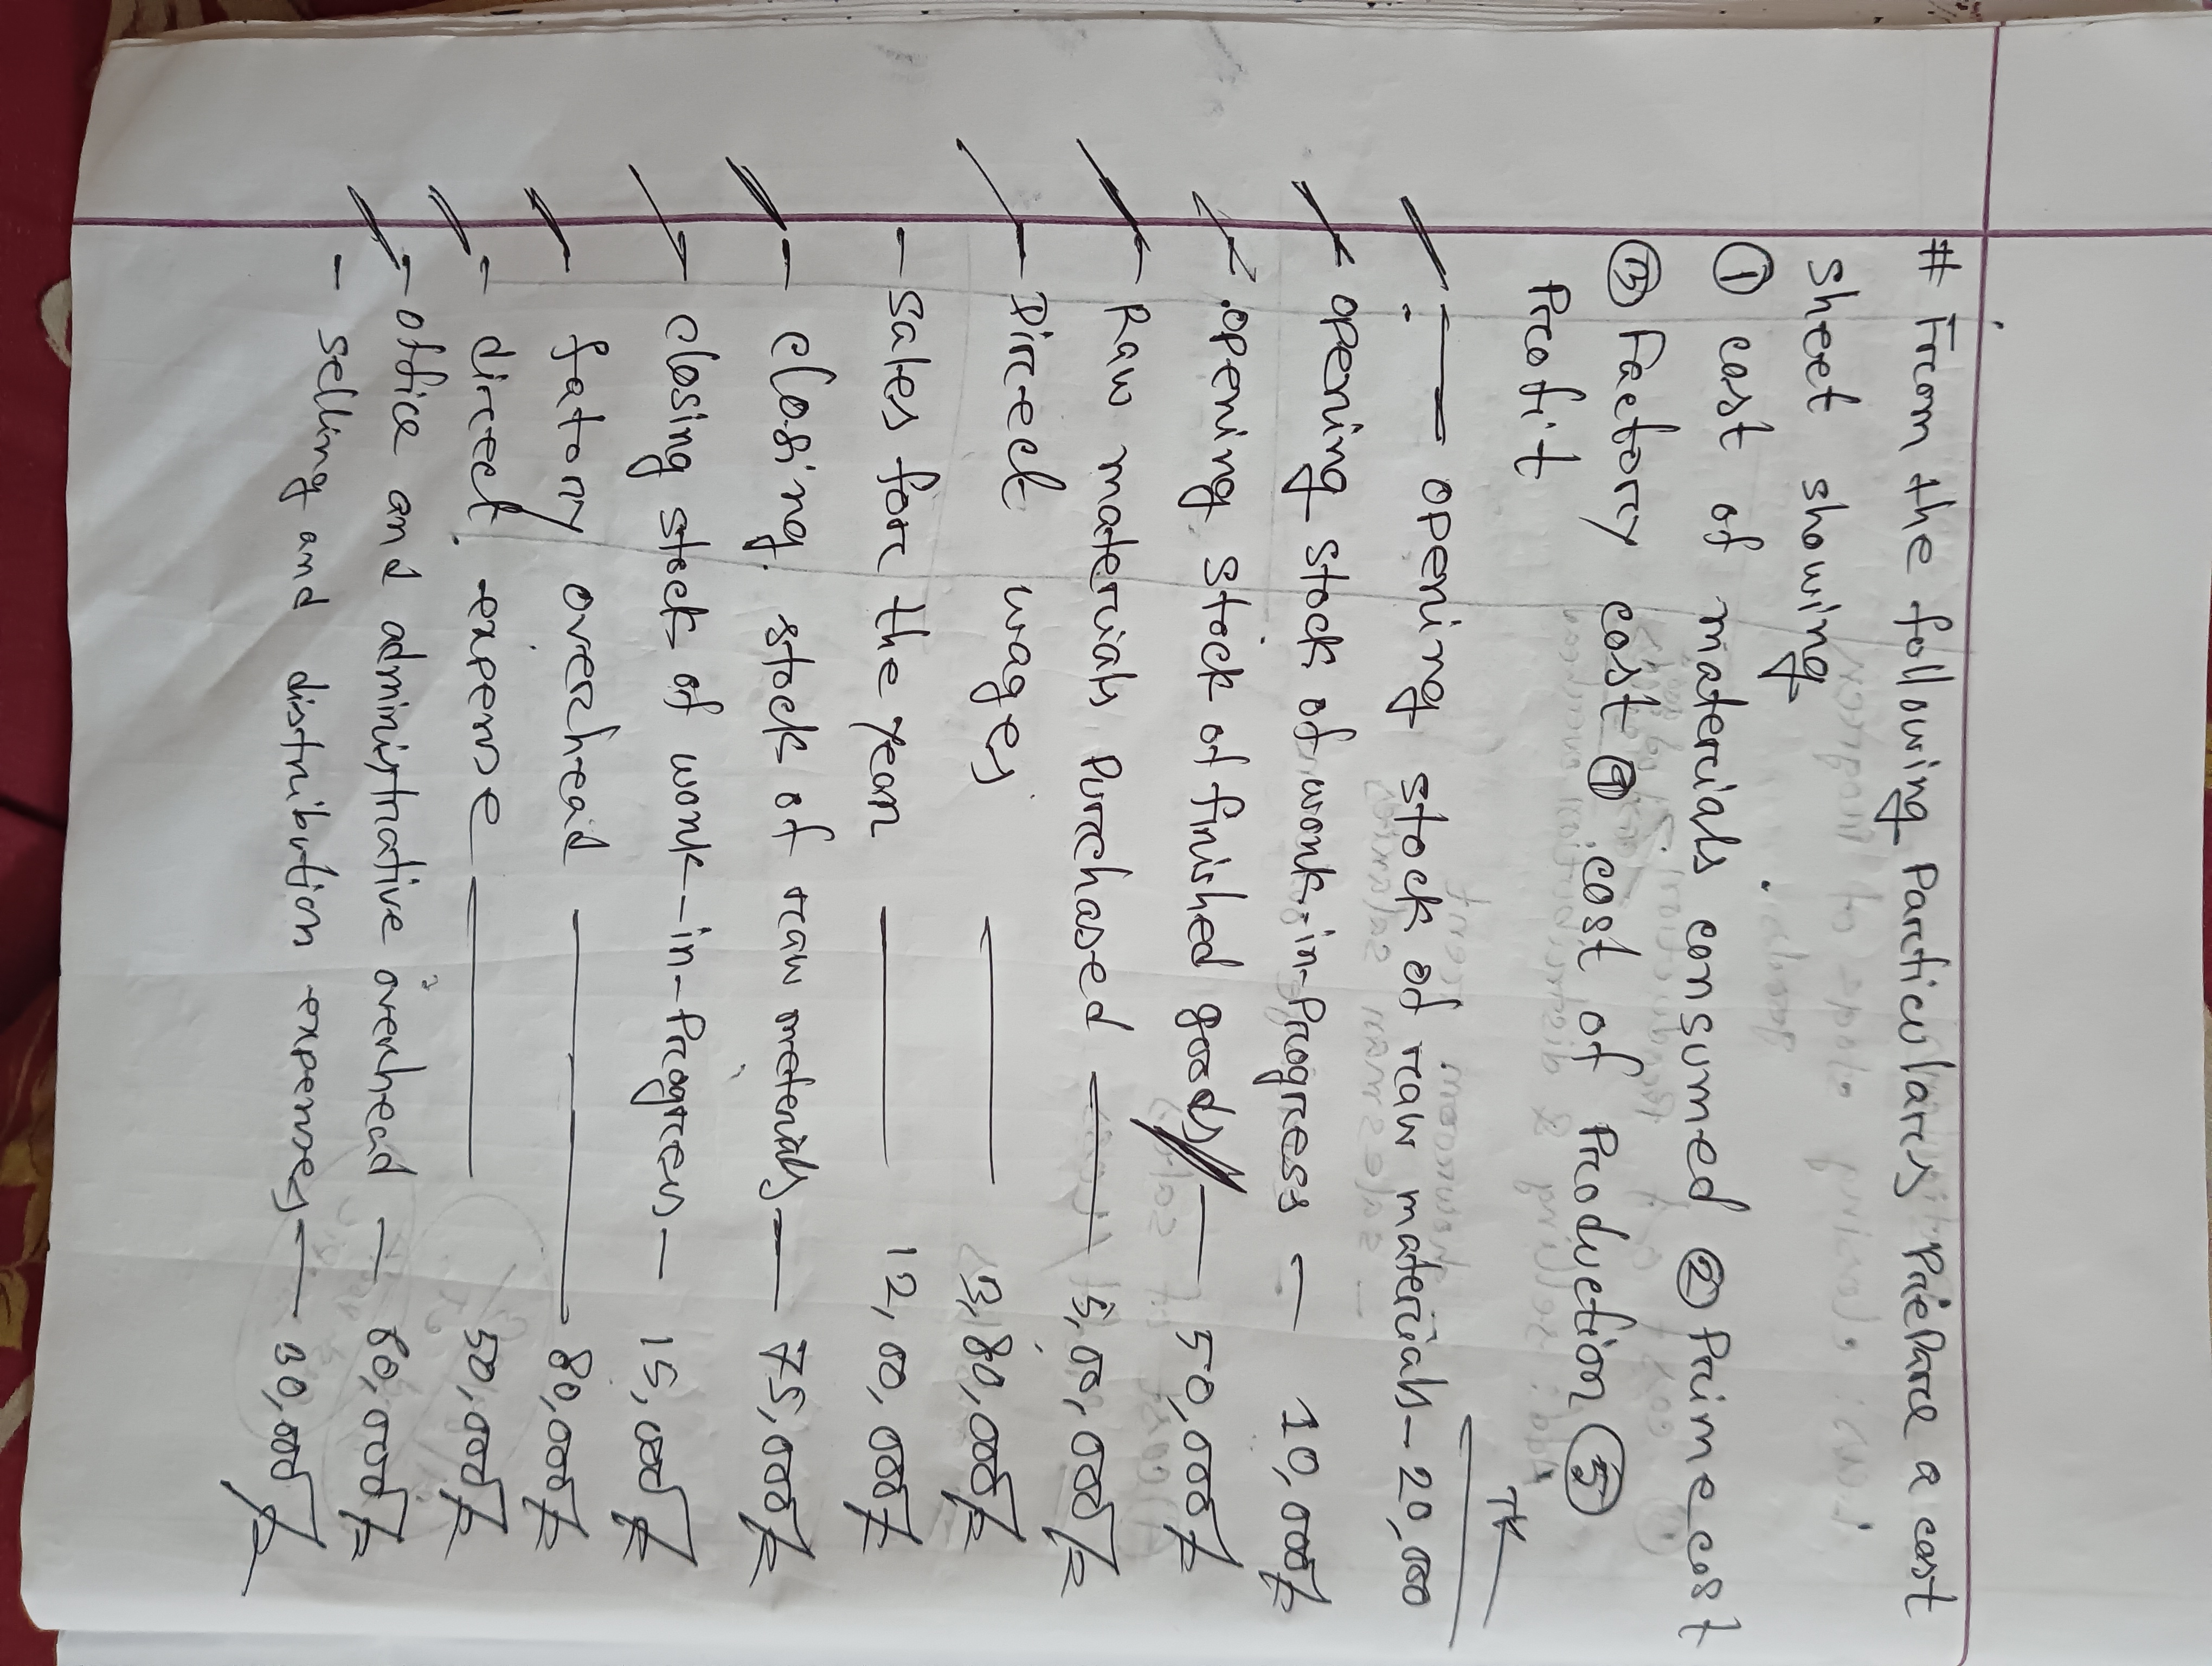 # From the following Particulars Prepare a cost
sheet showing
① cost of materials consumed ② Prime cost
③ Factory cost ④ cost of Production ⑤
Profit
TK
— opening stock of raw materials — 20,000
- opening stock of work-in-Progress — 10,000/=
- opening stock of finished goods — 50,000/=
- Raw materials Purchased — 5,00,000/=
- Direct wages — 3,80,000/=
- Sales for the year — 12,00,000/=
- closing stock of raw meterials — 75,000/=
- closing stock of work-in-Progress — 15,000/=
- fatory overhead — 80,000/=
- direct expense — 50,000/=
- office and administrative overhead — 60,000/=
- selling and distribution expenses — 30,000/=